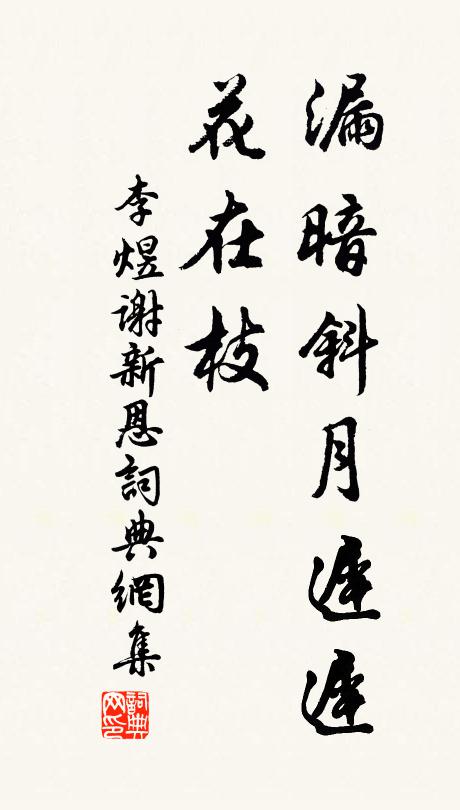 漏暗斜月遲遲
花在枝
李煜谢新恩詞典網集
詞典网印